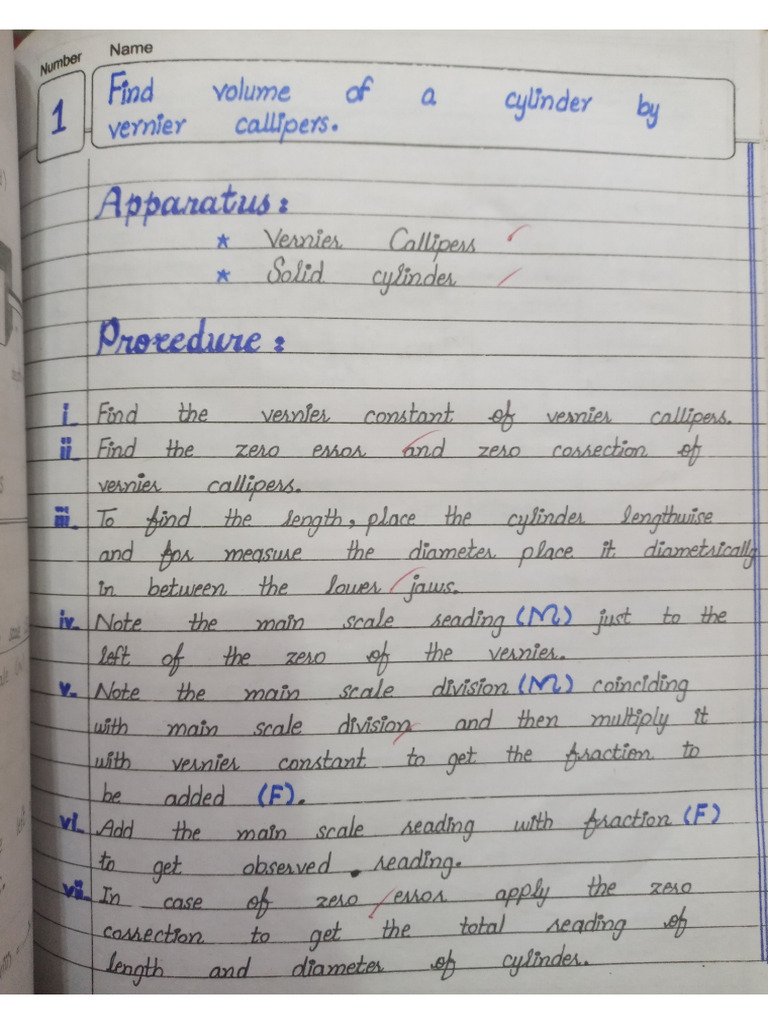 Number
Name
1
Find volume of a cylinder by
vernier callipers.
Apparatus:
* Vernier Callipers
* Solid cylinder
Procedure:
i. Find the vernier constant of vernier callipers.
ii. Find the zero error and zero correction of
vernier callipers.
iii. To find the length, place the cylinder lengthwise
and for measure the diameter place it diametrically
in between the lower jaws.
iv. Note the main scale reading (M) just to the
left of the zero of the vernier.
v. Note the main scale division (M) coinciding
with main scale division and then multiply it
with vernier constant to get the fraction to
be added (F).
vi. Add the main scale reading with fraction (F)
to get observed reading.
vii. In case of zero error apply the zero
correction to get the total reading of
length and diameter of cylinder.